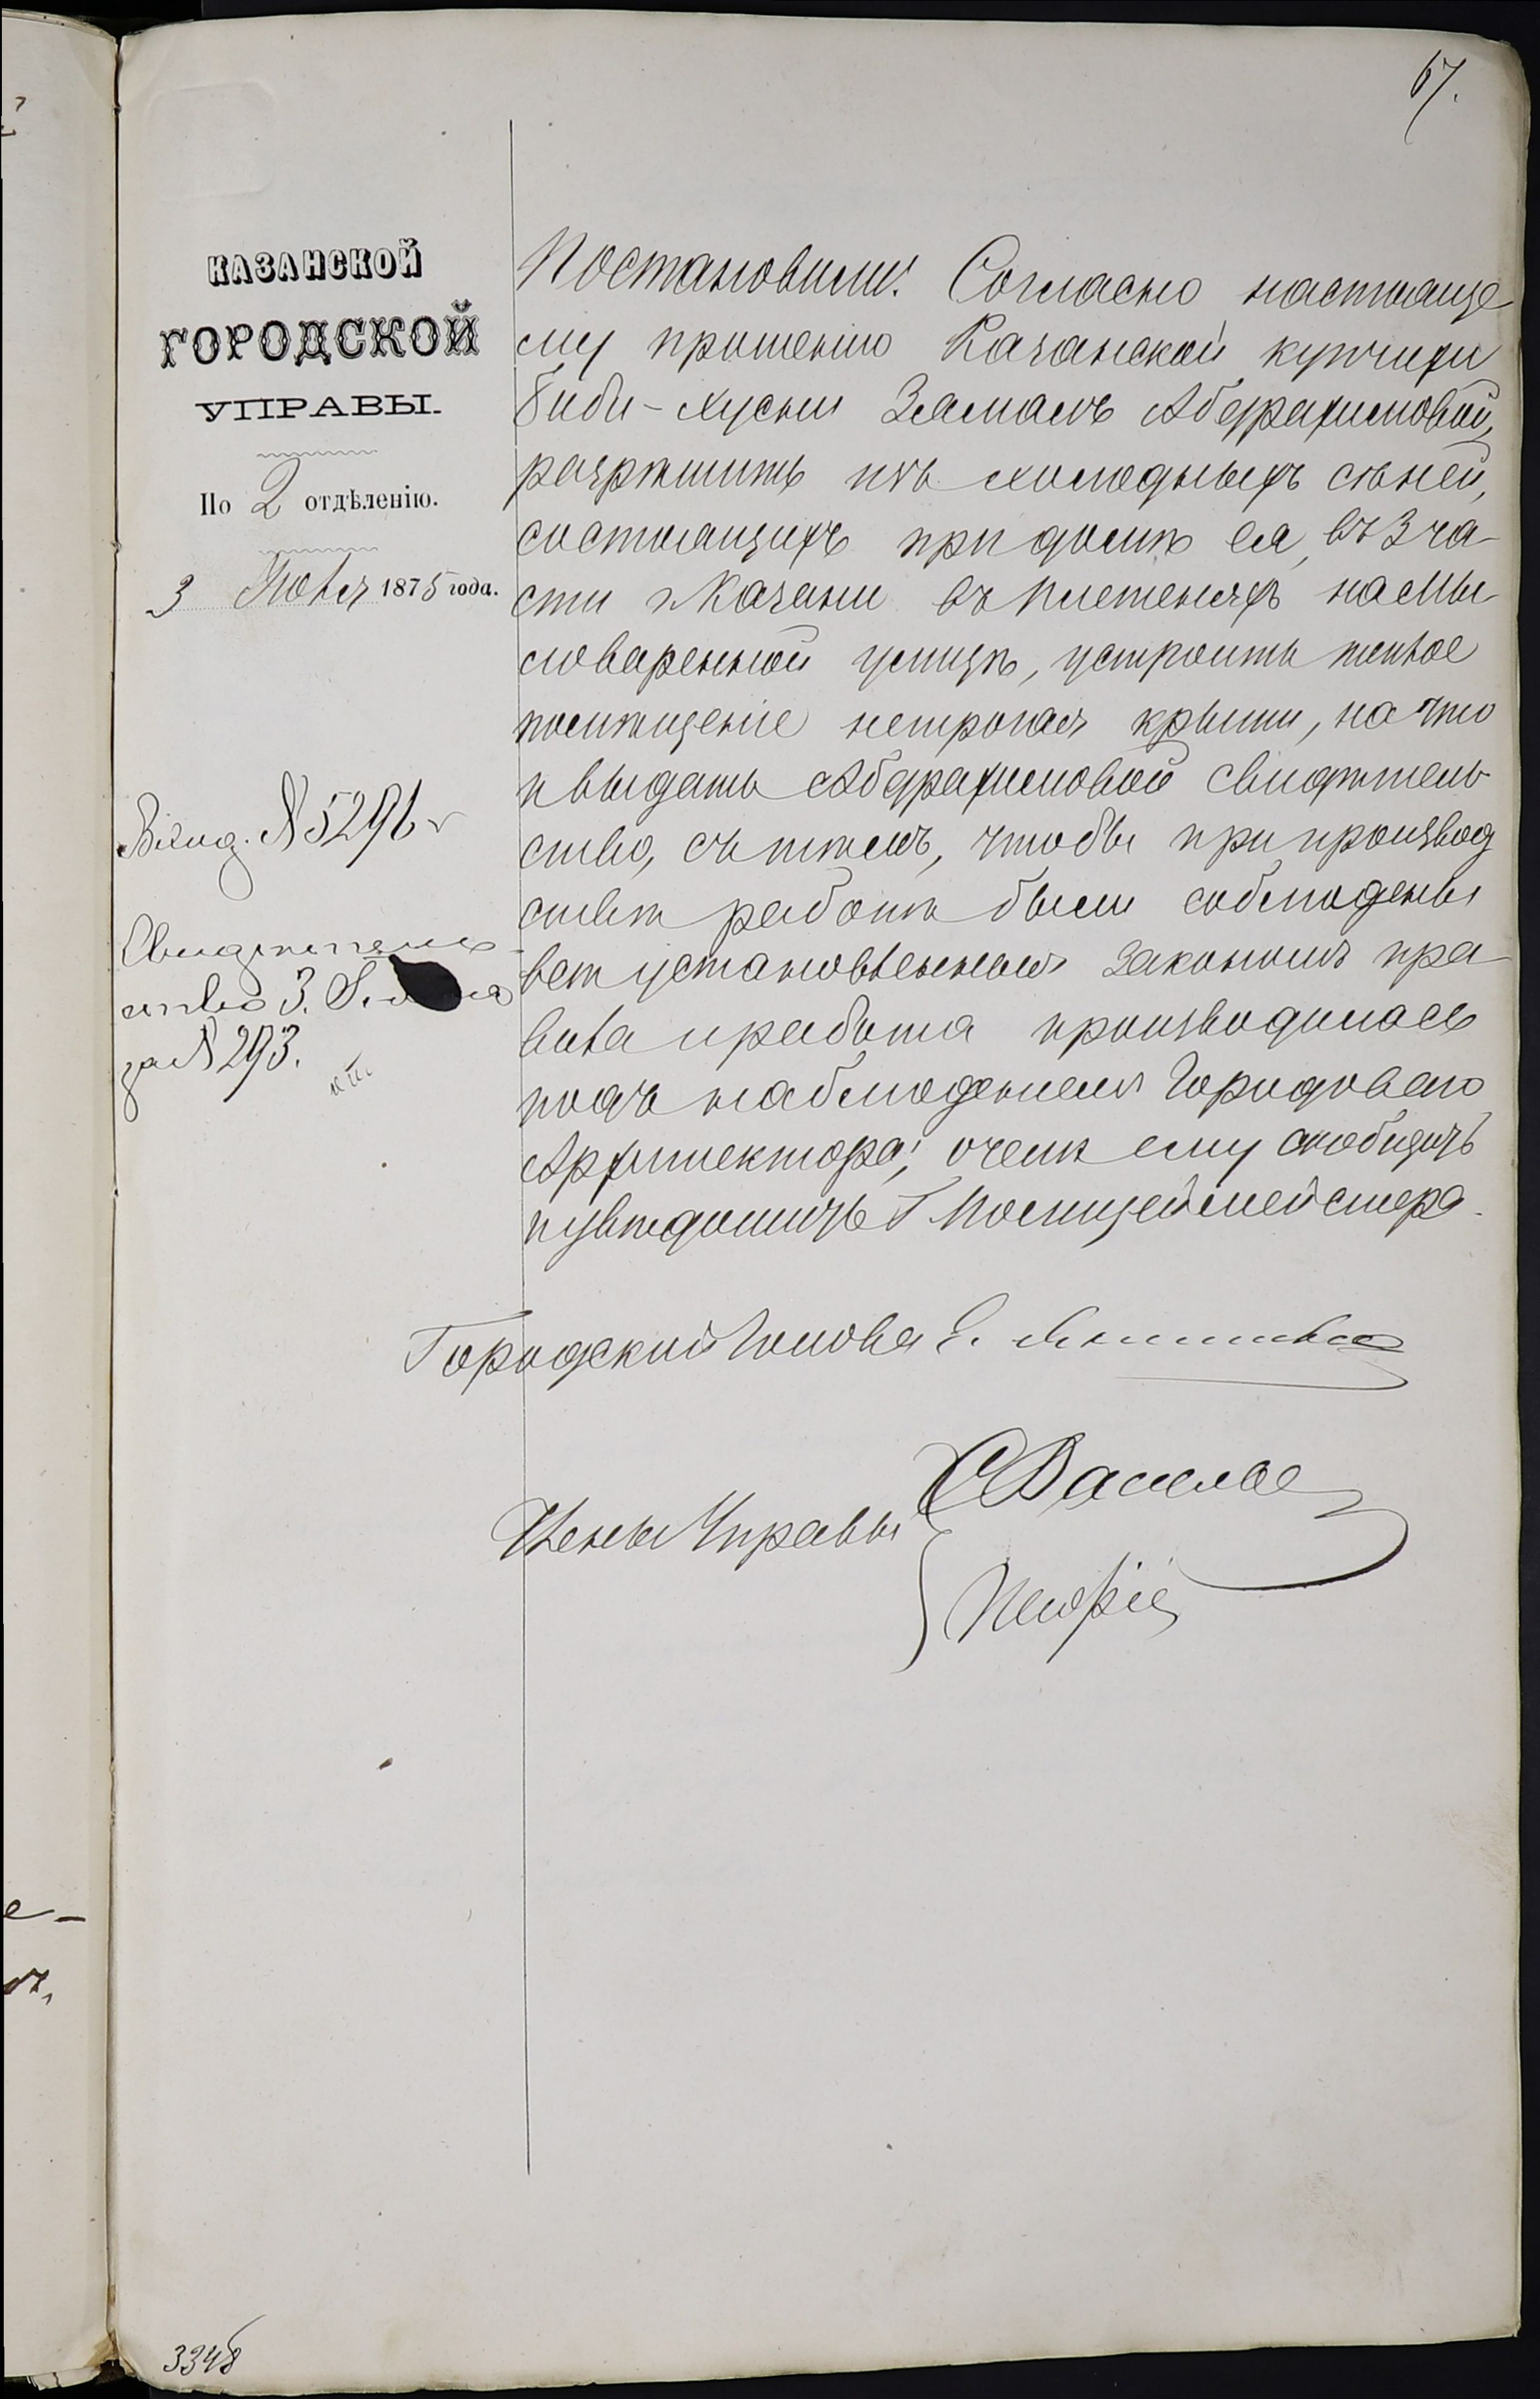 67.
КАЗАНСКОЙ
ГОРОДСКОЙ
УПРАВЫ.
По 2 отдѣленію.
3 Іюня 1875 года.
Постановили: Согласно настояще
му прошенію Казанской купчихи
Биби-Хусни Замалъ Абдрахимовой,
разрѣшить изъ холодныхъ сѣней,
состоящихъ при домѣ ея, въ 3 ча-
сти г Казани въ Плетеняхъ на Мы
ловаренной улицѣ, устроить теплое
помѣщеніе нетрогая крыши, на что
и выдать Абдрахимовой свидѣтель
ство, съ тѣмъ, чтобы при производ
ствѣ работъ были соблюдены
всѣ установленныя закономъ пра-
вила и работа производилась
подъ наблюденіемъ Городоваго
Архитектора; о чемъ ему сообщить
и увѣдомить Г Полицеймейстера.
Исход. № 5291
Свидѣтель-
ство 3.
за № 293.
Городской Голова Е.
Члены Управы
3348